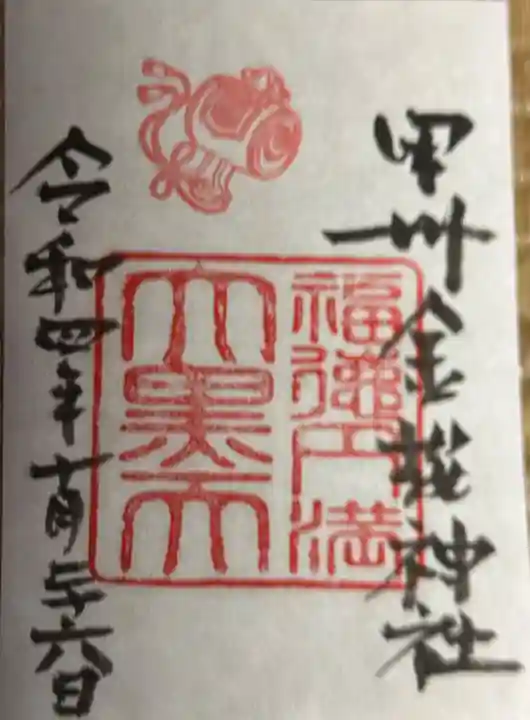 甲州金櫻神社
福徳円満
大黒天
令和四年十月廿六日